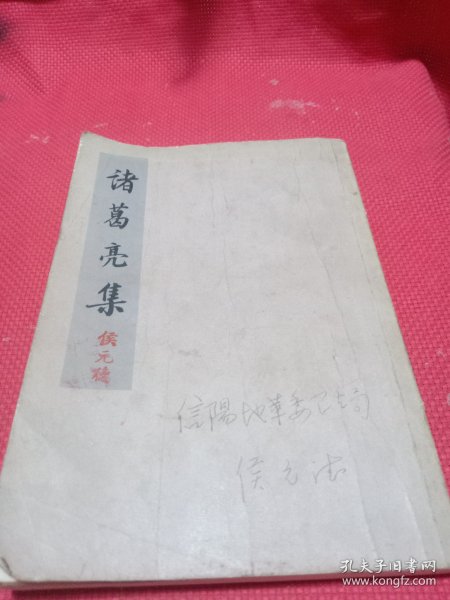 诸葛亮集
侯元德
信陽地革委卫生局
侯元德
孔夫子旧书网
www.kongfz.com